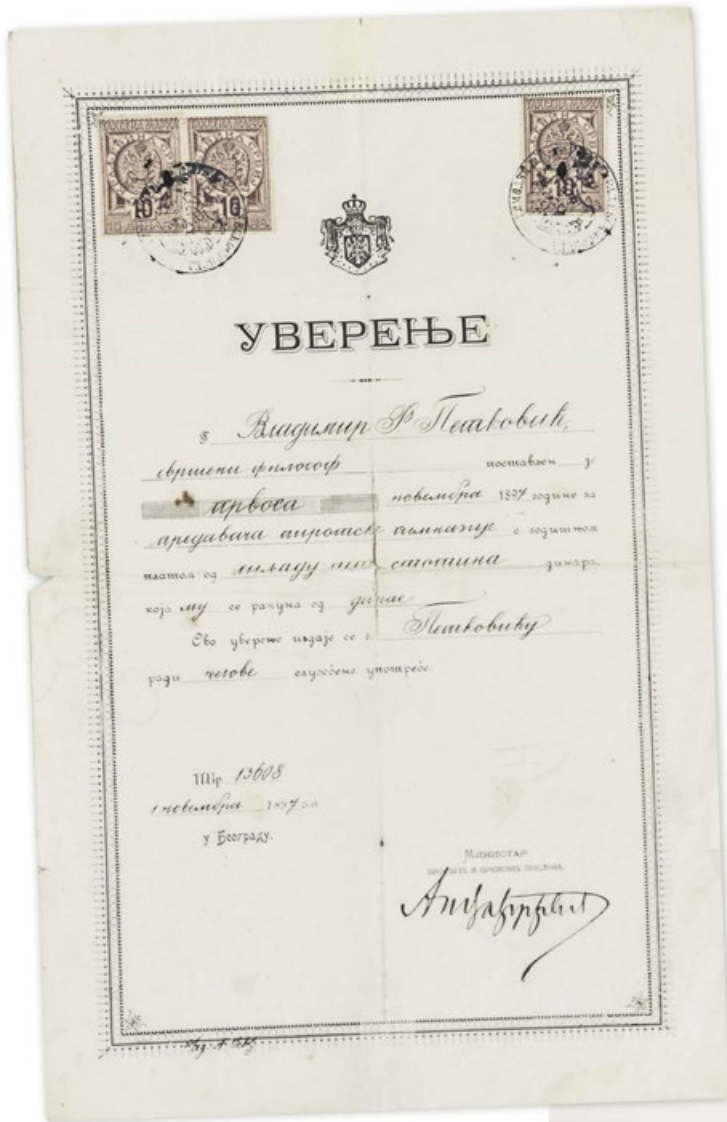 УВЕРЕЊЕ
Г. Владимир Р Петковић,
свршени филозоф постављен је
првога новембра 1897 године за
предавача пиротске гимназије с годишњом
платом од хиљаду пет стотина динара,
која му се рачуна од данас
Ово уверење издаје се г. Петковићу
ради његове службене употребе.
ПБр 13608
1 новембра 1897 год
у Београду.
Министар
просвете и црквених послова,
10
10
10